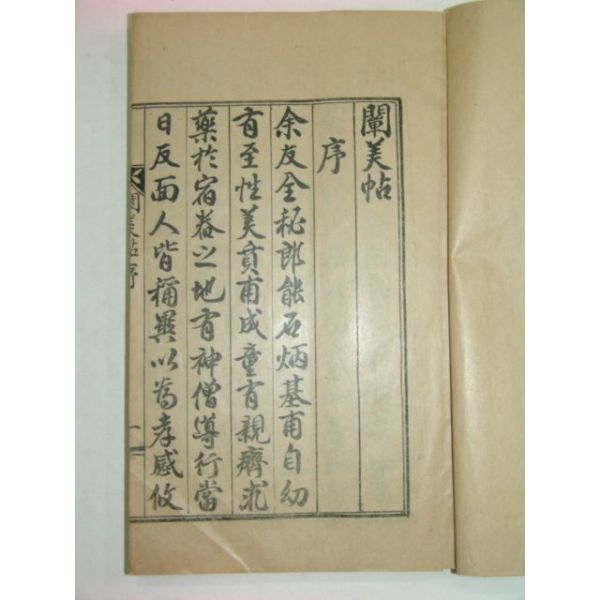 闡美帖
序
余友全秘郎能石炳基甫自幼
有至性美質甫成童有親癠求
藥於宿舂之地有神僧導行當
日反面人皆稱異以為孝感攸
闡美帖序
一